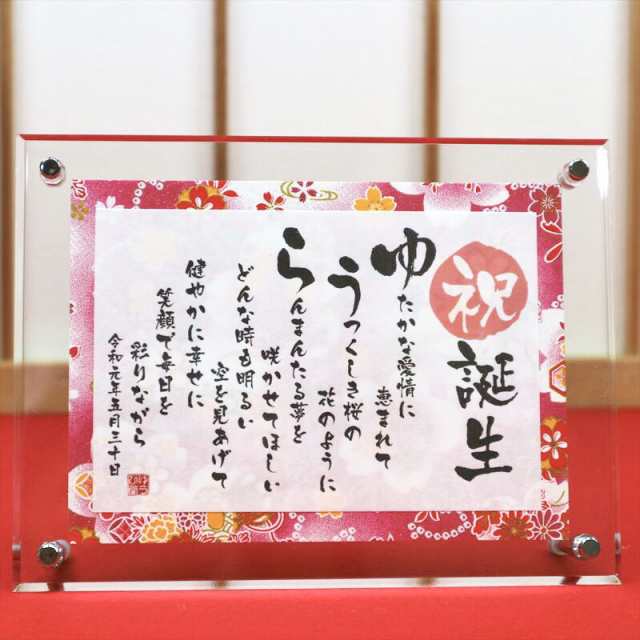 祝誕生
ゆたかな愛情に
恵まれて
うつくしき桜の
花のように
らんまんたる夢を
咲かせてほしい
どんな時も明るい
空を見あげて
健やかに幸せに
笑顔で毎日を
彩りながら
令和元年五月三十日